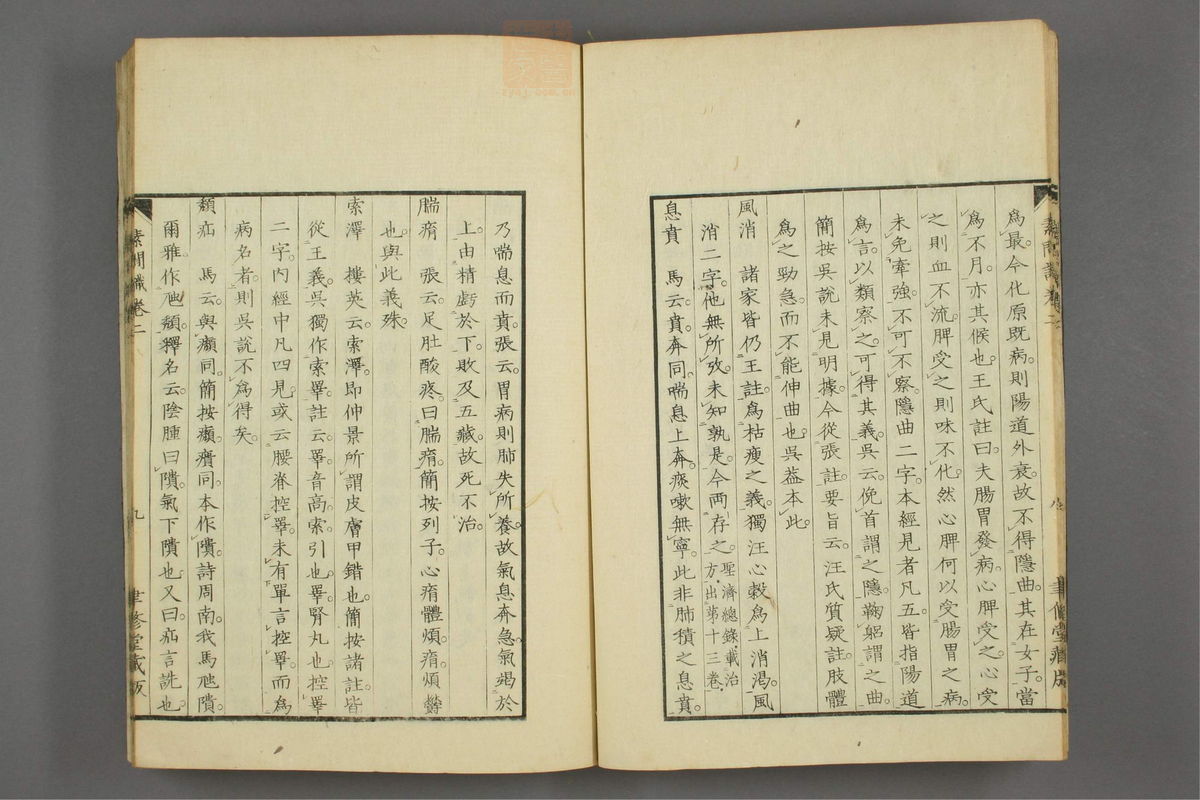 爲最。今化原既病。則陽道外衰。故不得隱曲。其在女子。當
爲不月。亦其候也。王氏註曰。夫腸胃發病。心脾受之。心受
之則血不流。脾受之則味不化。然心脾何以受腸胃之病。
未免牽強。不可不察。隱曲二字。本經見者凡五。皆指陽道
爲言。以類察之。可得其義。吳云。俛首謂之隱。鞠躬謂之曲。
簡按吳說未見明據。今從張註。要旨云。汪氏質疑註。肢體
爲之勁急。而不能伸曲也。吳葢本此。
風消 諸家皆仍王註。爲枯瘦之義。獨汪心穀爲上消渴。風
消二字。他無所攷。未知孰是。今兩存之。聖濟總錄。載治
方。出第十三卷。
息賁 馬云。賁。奔同。喘息上奔。痰嗽無寧。此非肺積之息賁。
素問識卷二
聿修堂藏版
乃喘息而賁。張云。胃病則肺失所養。故氣息奔急。氣竭於
上。由精虧於下。敗及五藏。故死不治。
腨㾓 張云。足肚酸疼。曰腨㾓。簡按列子。心㾓體煩。㾓煩鬱
也。與此義殊。
索澤 摟英云。索澤。卽仲景所謂皮膚甲錯也。簡按諸註皆
從王義。吳獨作索睪。註云。睪。音高。索。引也。睪。腎丸也。控睪
二字。內經中凡四見。或云腰脊控睪。未有單言控睪。而爲
病名者。則吳說不爲得矣。
㿗疝 馬云。與癩同。簡按癩。㿉同。本作隤。詩周南。我馬虺隤。
爾雅作虺頹。釋名云。陰腫曰隤。氣下隤也。又曰。疝言詵也。
素問識卷二
九
聿修堂藏版